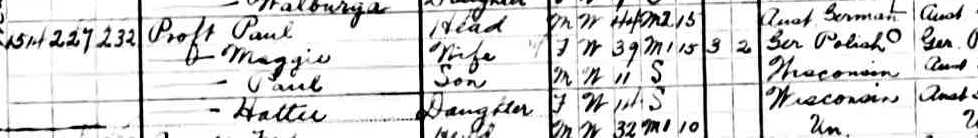 – Walburga Daughter
1514 227 232 Proft Paul Head M W 44 M1 15 Aust German Aust
– Maggie Wife F W 39 M1 15 3 2 Ger Polish Ger P
– Paul Son M W 11 S Wisconsin Aust
– Hattie Daughter F W 14 S Wisconsin Aust
Head M W 32 M1 10 Un